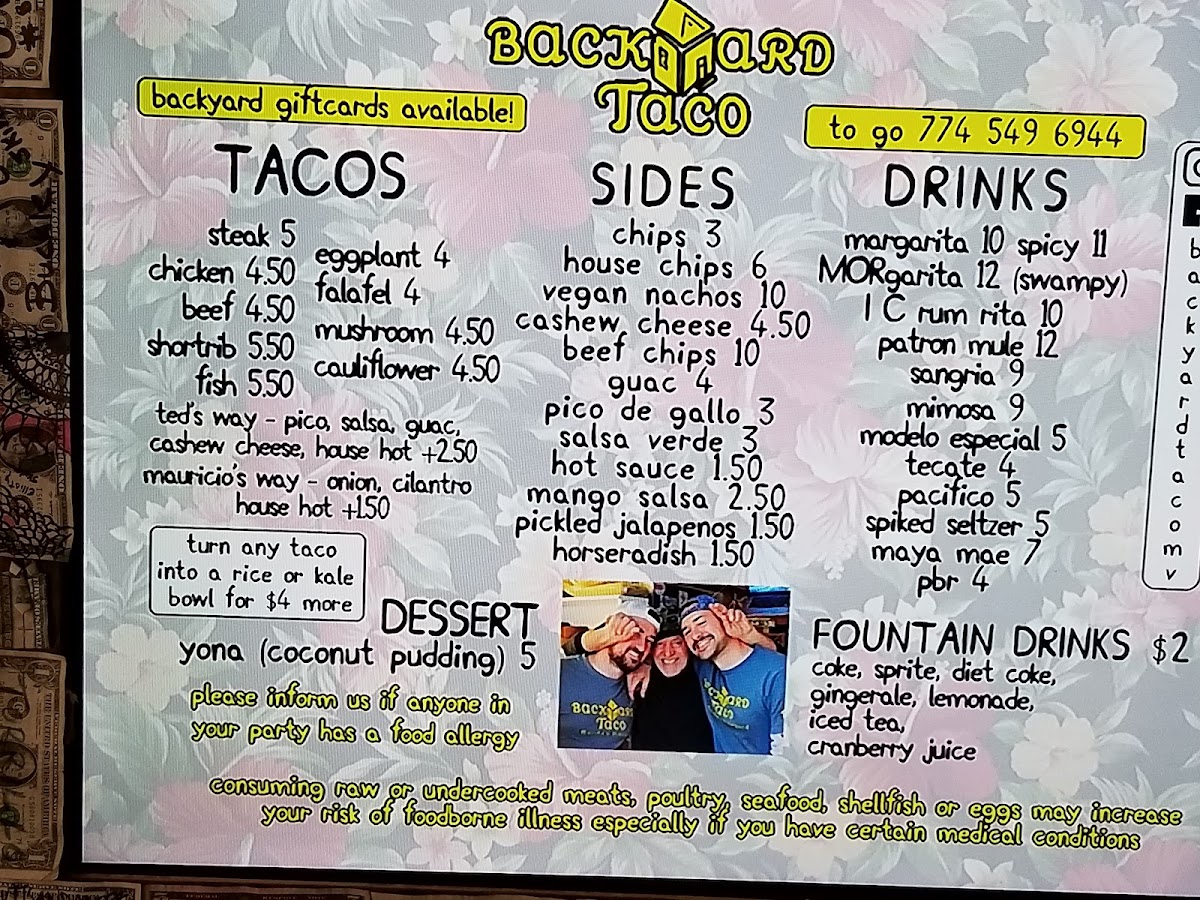 BACKYARD
Taco
backyard giftcards available!
to go 774 549 6944
TACOS
steak 5
chicken 4.50
beef 4.50
shortrib 5.50
fish 5.50
eggplant 4
falafel 4
mushroom 4.50
cauliflower 4.50
ted's way - pico, salsa, guac,
cashew cheese, house hot +2.50
mauricio's way - onion, cilantro
house hot +1.50
turn any taco
into a rice or kale
bowl for $4 more
DESSERT
yona (coconut pudding) 5
please inform us if anyone in
your party has a food allergy
SIDES
chips 3
house chips 6
vegan nachos 10
cashew cheese 4.50
beef chips 10
guac 4
pico de gallo 3
salsa verde 3
hot sauce 1.50
mango salsa 2.50
pickled jalapenos 1.50
horseradish 1.50
BACKYARD
Taco
BACKYARD
Taco
DRINKS
margarita 10 spicy 11
MORgarita 12 (swampy)
I C rum rita 10
patron mule 12
sangria 9
mimosa 9
modelo especial 5
tecate 4
pacifico 5
spiked seltzer 5
maya mae 7
pbr 4
FOUNTAIN DRINKS $2
coke, sprite, diet coke,
gingerale, lemonade,
iced tea,
cranberry juice
backyardtacomv
consuming raw or undercooked meats, poultry, seafood, shellfish or eggs may increase
your risk of foodborne illness especially if you have certain medical conditions
BUCKY
ONE DOLLAR